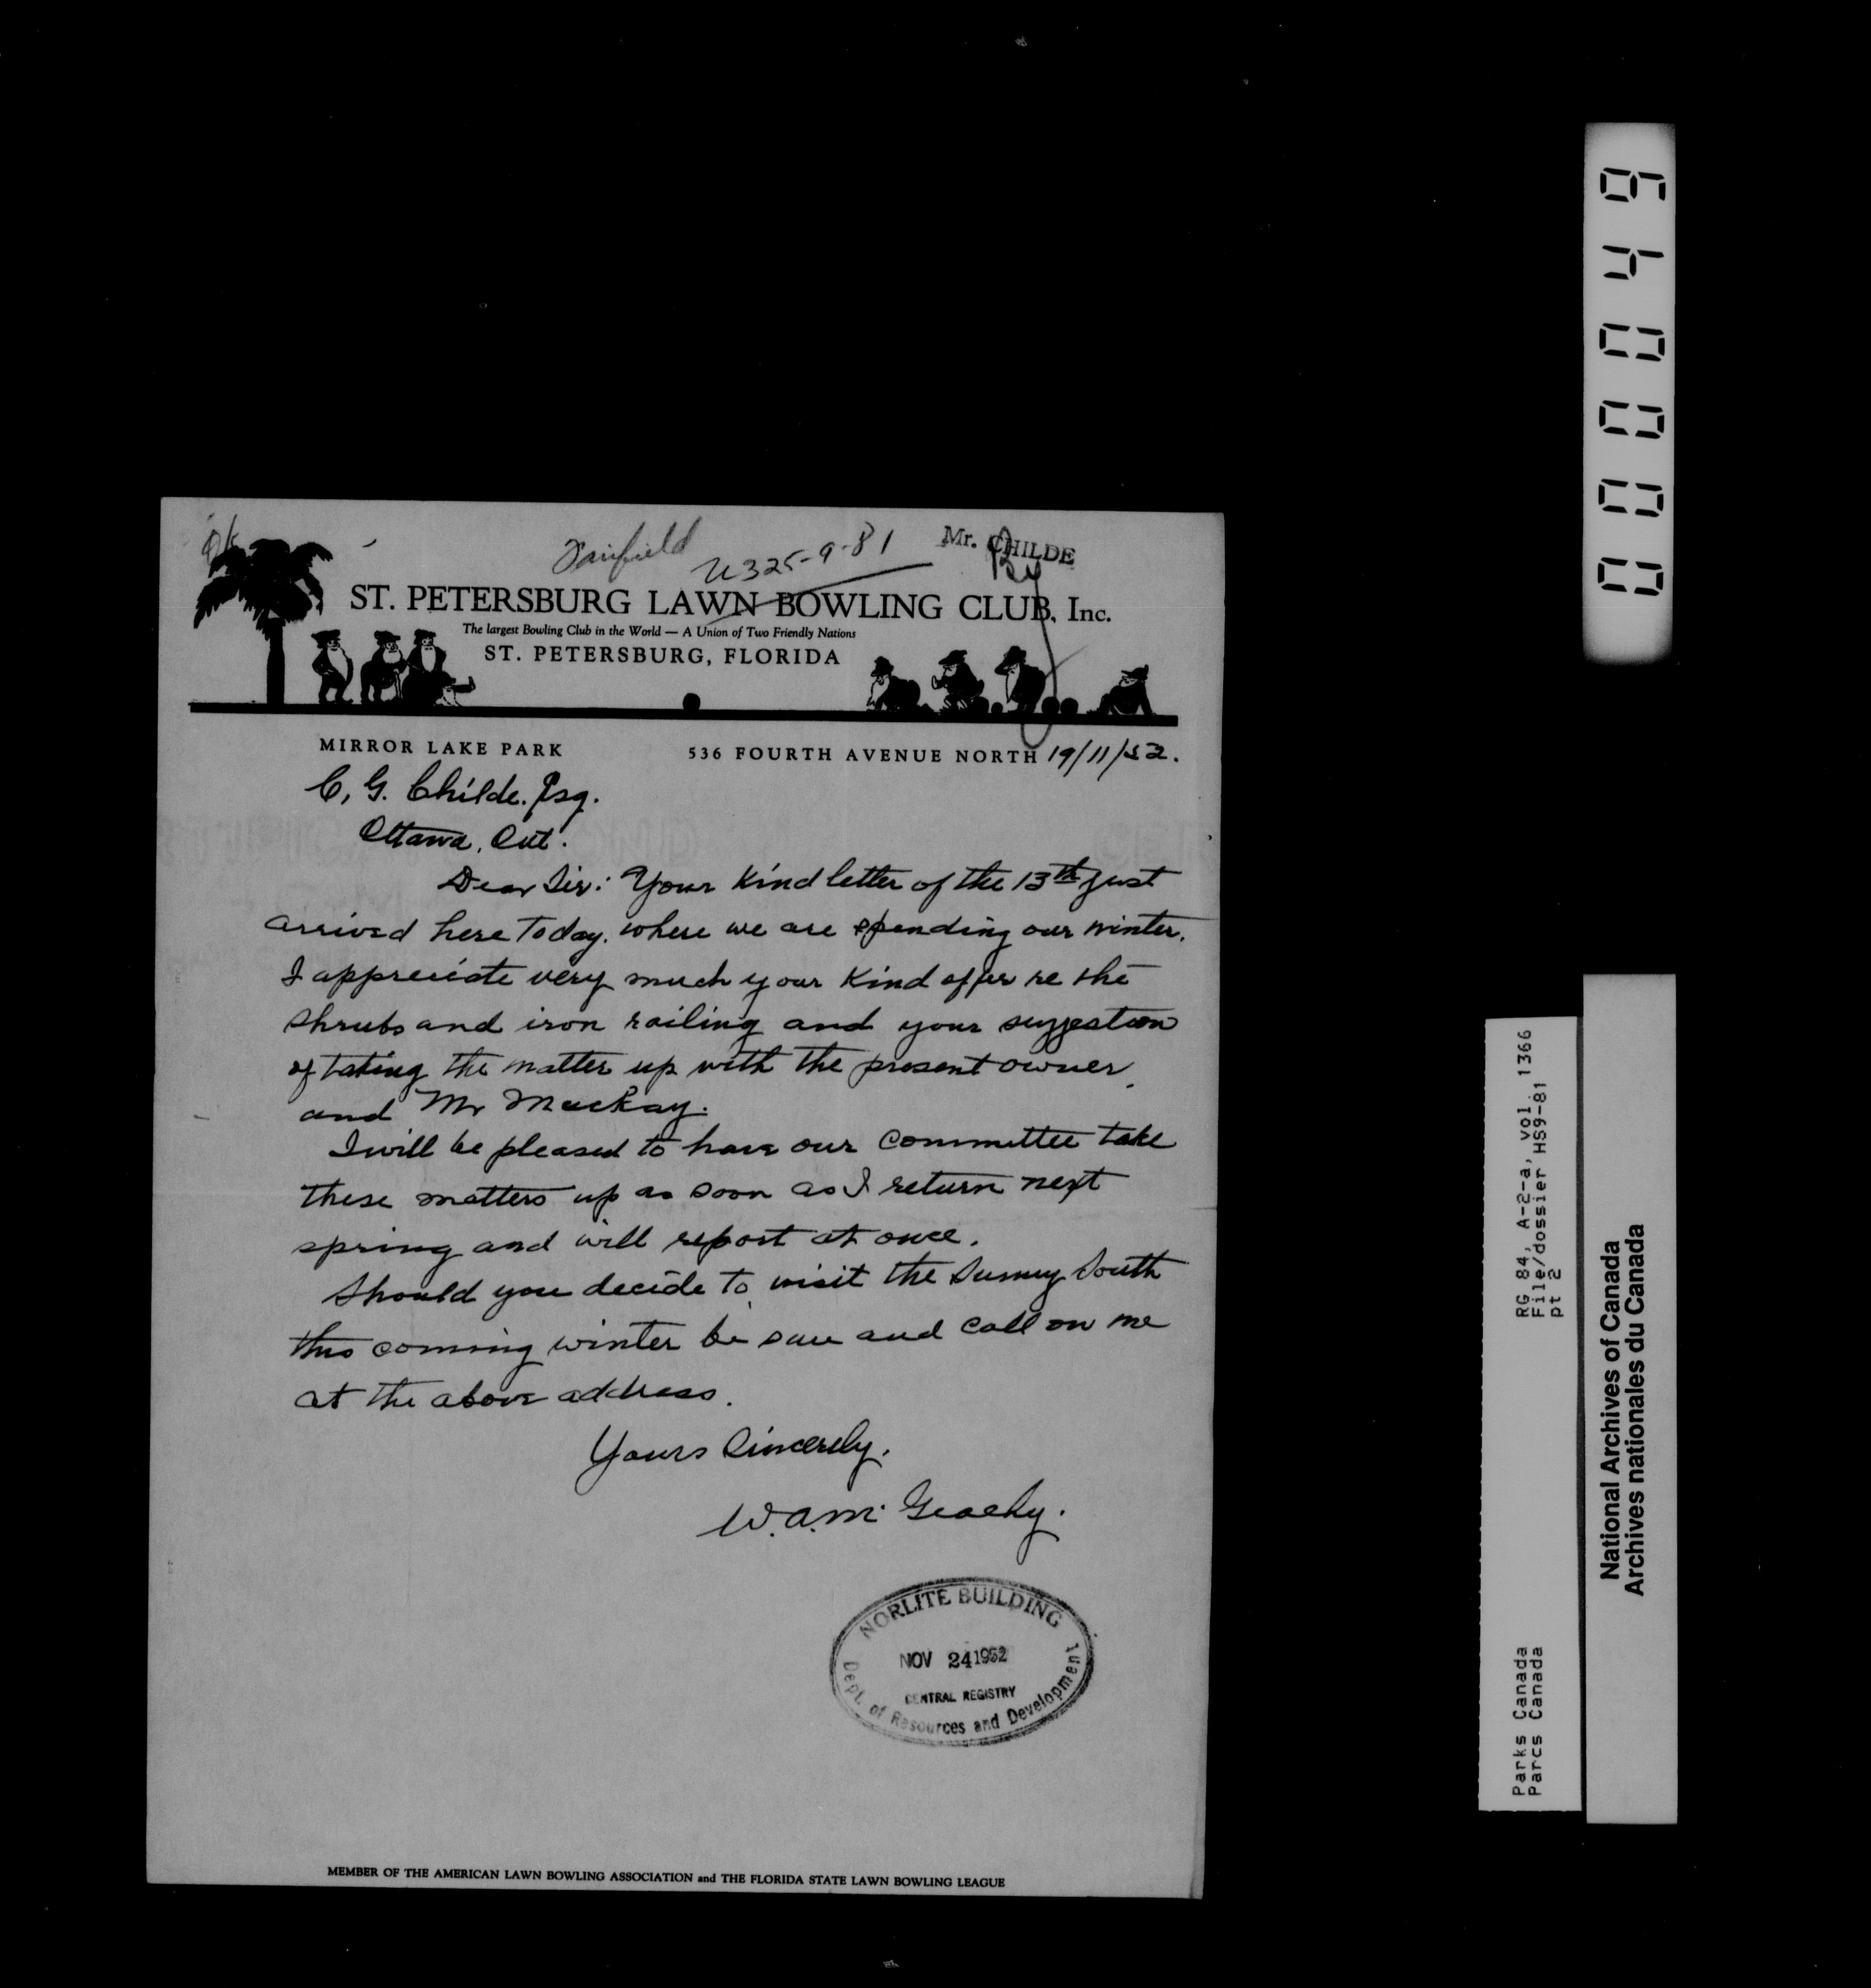 Fairfield
U325-9-81
Mr. CHILDE
ST. PETERSBURG LAWN BOWLING CLUB, Inc.
The largest Bowling Club in the World — A Union of Two Friendly Nations
ST. PETERSBURG, FLORIDA
MIRROR LAKE PARK
536 FOURTH AVENUE NORTH 19/11/52.
C. G. Childe. Esq.
Ottawa, Ont.
Dear Sir: Your kind letter of the 13th just
arrived here today. where we are spending our winter.
I appreciate very much your kind offer re the
shrubs and iron railing and your suggestion
of taking the matter up with the present owner.
and Mr MacKay.
I will be pleased to have our committee take
these matters up as soon as I return next
spring and will report at once.
Should you decide to visit the Sunny South
this coming winter be sure and call on me
at the above address.
Yours Sincerely.
W.A.M. Geachy.
NORLITE BUILDING
NOV 24 1952
CENTRAL REGISTRY
Dept. of Resources and Development
MEMBER OF THE AMERICAN LAWN BOWLING ASSOCIATION and THE FLORIDA STATE LAWN BOWLING LEAGUE
000049
RG 84, A-2-a, vol. 1366
File/dossier HS9-81
pt 2
Parks Canada
Parcs Canada
National Archives of Canada
Archives nationales du Canada